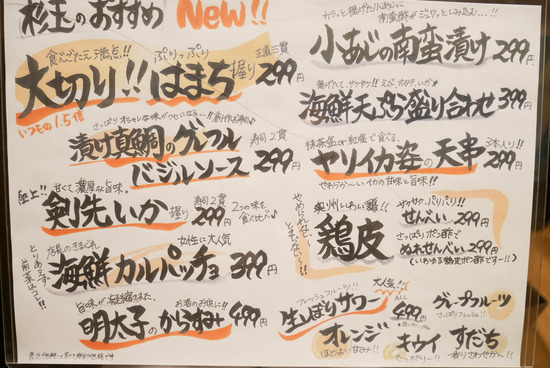 杉玉のおすすめ New!!
食べごたえ満点!! ぷりっぷり 王道二貫
大切り!!はまち握り299円
いつもの1.5倍
さっぱりオシャレな味がクセになる
漬け真鯛のグレフル
寿司2貫
バジルソース299円
極上!! 甘くて濃厚な旨味。
剣先いか握り
寿司2貫
299円
2つの味を食べ比べ
とりあえず前菜はコレ!!
店長のきまぐれ 女性に大人気
海鮮カルパッチョ399円
旨味が凝縮された、 お酒のお供に!!
明太子のからすみ499円
カラッと揚げた小あじに
南蛮酢がジュワッとしみ込む…!!
小あじの南蛮漬け299円
揚げたて、サクサク!! えび、ホタテ、いか
海鮮天ぷら盛り合わせ399円
抹茶塩or紅塩で食べる、 3本入り!!
ヤリイカ姿の天串299円
やわらか〜いイカの甘味と旨味!!
やめられない〜とまらない〜!!
奥州いわい鶏!!
鶏皮
サックサク、パリパリ!!
せんべい299円
さっぱりポン酢で
ぬれせんべい299円
(いわゆる鶏皮ポン酢です〜!!)
フレッシュフルーツ!! 大人気!!
生しぼりサワー
ALL
499円
グレープフルーツ
さっぱりフレッシュ!!
オレンジ
ほどよい甘み!!
キウイ
すだち
香りさわやか〜!!